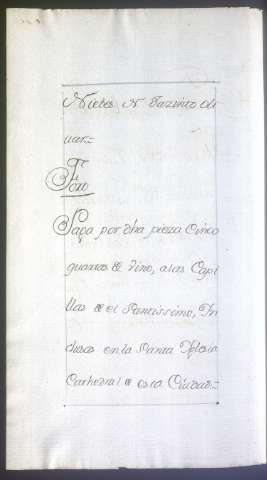 Nietos, N Jazinto Oli
uar=
Foro
Paga por dha pieza Cinco
quartas de vino, a las Capi
llas de el Santissimo, In
clusas en la Santa Yglesia
Cathedral de esta Ciudad=